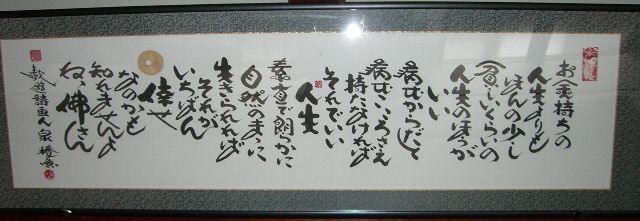 お金持ちの
人生よりも
ほんの少し
貧しいくらいの
人生のほうが
いい
病むからだて
病むこころさえ
持たなければ
それでいい
人生
素直で朗らかに
自然のまゝに
生きられれば
それが
いちばん
倖せ
なのかも
知れませんよ
ね 佛さん